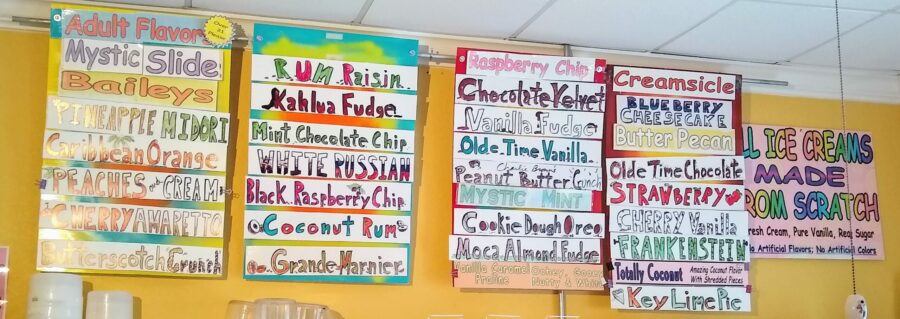 Adult Flavors
Over 21 Please
Mystic Slide
Baileys
PINEAPPLE MIDORI
Caribbean Orange
PEACHES and CREAM
CHERRY AMARETTO
Butterscotch Crunch
RUM Raisin
Kahlua Fudge
Mint Chocolate Chip
WHITE RUSSIAN
Black Raspberry Chip
Coconut Rum
Grande Marnier
Raspberry Chip
Chocolate Velvet
Vanilla Fudge
Olde Time Vanilla
Peanut Butter Crunch
MYSTIC MINT
Cookie Dough Oreo
Moca Almond Fudge
Vanilla Caramel Praline
Oohey, Gooey Nutty & White
Creamsicle
BLUEBERRY CHEESECAKE
Butter Pecan
Olde Time Chocolate
STRAWBERRY
CHERRY Vanilla
FRANKENSTEIN
Totally Coconut Amazing Coconut Flavor With Shredded Pieces
Key Lime Pie
LL ICE CREAMS
MADE
ROM SCRATCH
resh Cream, Pure Vanilla, Real Sugar
o Artificial Flavors; No Artificial Colors